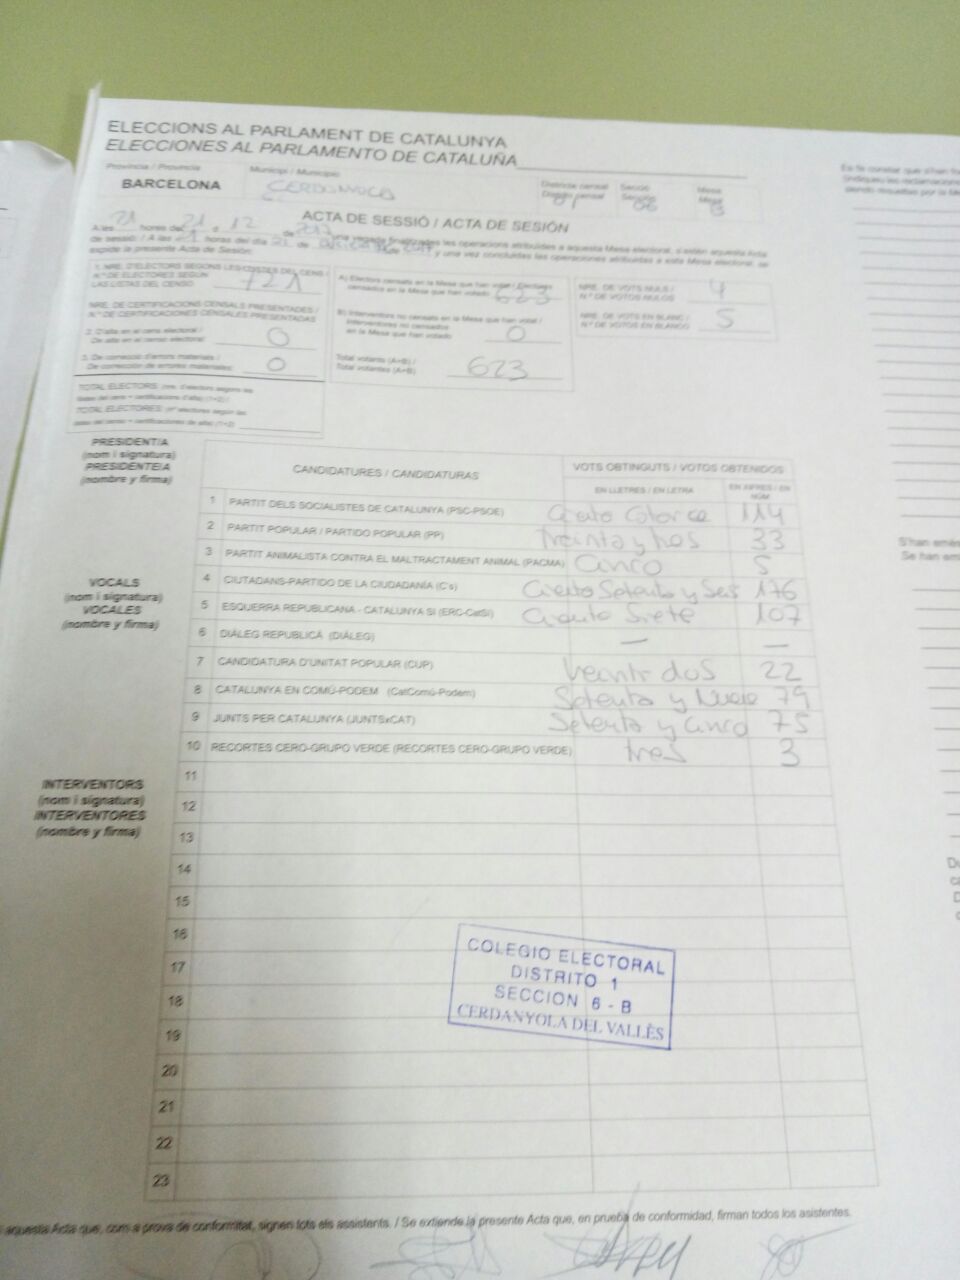 ELECCIONS AL PARLAMENT DE CATALUNYA
ELECCIONES AL PARLAMENTO DE CATALUÑA
Província / Provincia
Municipi / Municipio
BARCELONA
Districte censal
Distrito censal 01
Secció
Sección 06
Mesa
Mesa B
ACTA DE SESSIÓ / ACTA DE SESIÓN
A les 21 hores del 21 d 12 de 2017 una vegada finalitzades les operacions atribuïdes a aquesta Mesa electoral, s'estén aquesta Acta
de sessió: / A las 21 horas del día 21 de de 2017 y una vez concluidas las operaciones atribuidas a esta Mesa electoral, se
expide la presente Acta de Sesión:
1. NRE. D'ELECTORS SEGONS LES LLISTES DEL CENS
N.º DE ELECTORES SEGÚN
LAS LISTAS DEL CENSO 721
NRE. DE CERTIFICACIONS CENSALS PRESENTADES /
N.º DE CERTIFICACIONES CENSALES PRESENTADAS
2. D'alta en el cens electoral /
De alta en el censo electoral: 0
3. De correcció d'errors materials /
De corrección de errores materiales: 0
TOTAL ELECTORS: (nre. d'electors segons les
llistes del cens + certificacions d'alta) (1+2) /
TOTAL ELECTORES: (nº electores según las
listas del censo + certificaciones de alta) (1+2)
A) Electors censats en la Mesa que han votat / Electores
censados en la Mesa que han votado 623
B) Interventors no censats en la Mesa que han votat /
Interventores no censados
en la Mesa que han votado 0
Total votants (A+B) /
Total votantes (A+B) 623
NRE. DE VOTS NULS /
N.º DE VOTOS NULOS 4
NRE. DE VOTS EN BLANC /
N.º DE VOTOS EN BLANCO 5
PRESIDENT/A
(nom i signatura)
PRESIDENTE/A
(nombre y firma)
VOCALS
(nom i signatura)
VOCALES
(nombre y firma)
INTERVENTORS
(nom i signatura)
INTERVENTORES
(nombre y firma)
CANDIDATURES / CANDIDATURAS
VOTS OBTINGUTS / VOTOS OBTENIDOS
EN LLETRES / EN LETRA
EN XIFRES / EN NÚM
1 PARTIT DELS SOCIALISTES DE CATALUNYA (PSC-PSOE) Ciento Catorce 114
2 PARTIT POPULAR / PARTIDO POPULAR (PP) treinta y tres 33
3 PARTIT ANIMALISTA CONTRA EL MALTRACTAMENT ANIMAL (PACMA) Cinco 5
4 CIUTADANS-PARTIDO DE LA CIUDADANÍA (C's) Ciento Setenta y Seis 176
5 ESQUERRA REPUBLICANA - CATALUNYA SÍ (ERC-CatSí) Ciento Siete 107
6 DIÀLEG REPUBLICÀ (DIÀLEG) — —
7 CANDIDATURA D'UNITAT POPULAR (CUP) Veinti dos 22
8 CATALUNYA EN COMÚ-PODEM (CatComú-Podem) Setenta y Nueve 79
9 JUNTS PER CATALUNYA (JUNTSxCAT) Setenta y Cinco 75
10 RECORTES CERO-GRUPO VERDE (RECORTES CERO-GRUPO VERDE) tres 3
11
12
13
14
15
16
17
18
19
20
21
22
23
COLEGIO ELECTORAL
DISTRITO 1
SECCION 6 - B
CERDANYOLA DEL VALLÈS
aquesta Acta que, com a prova de conformitat, signen tots els assistents. / Se extiende la presente Acta que, en prueba de conformidad, firman todos los asistentes.